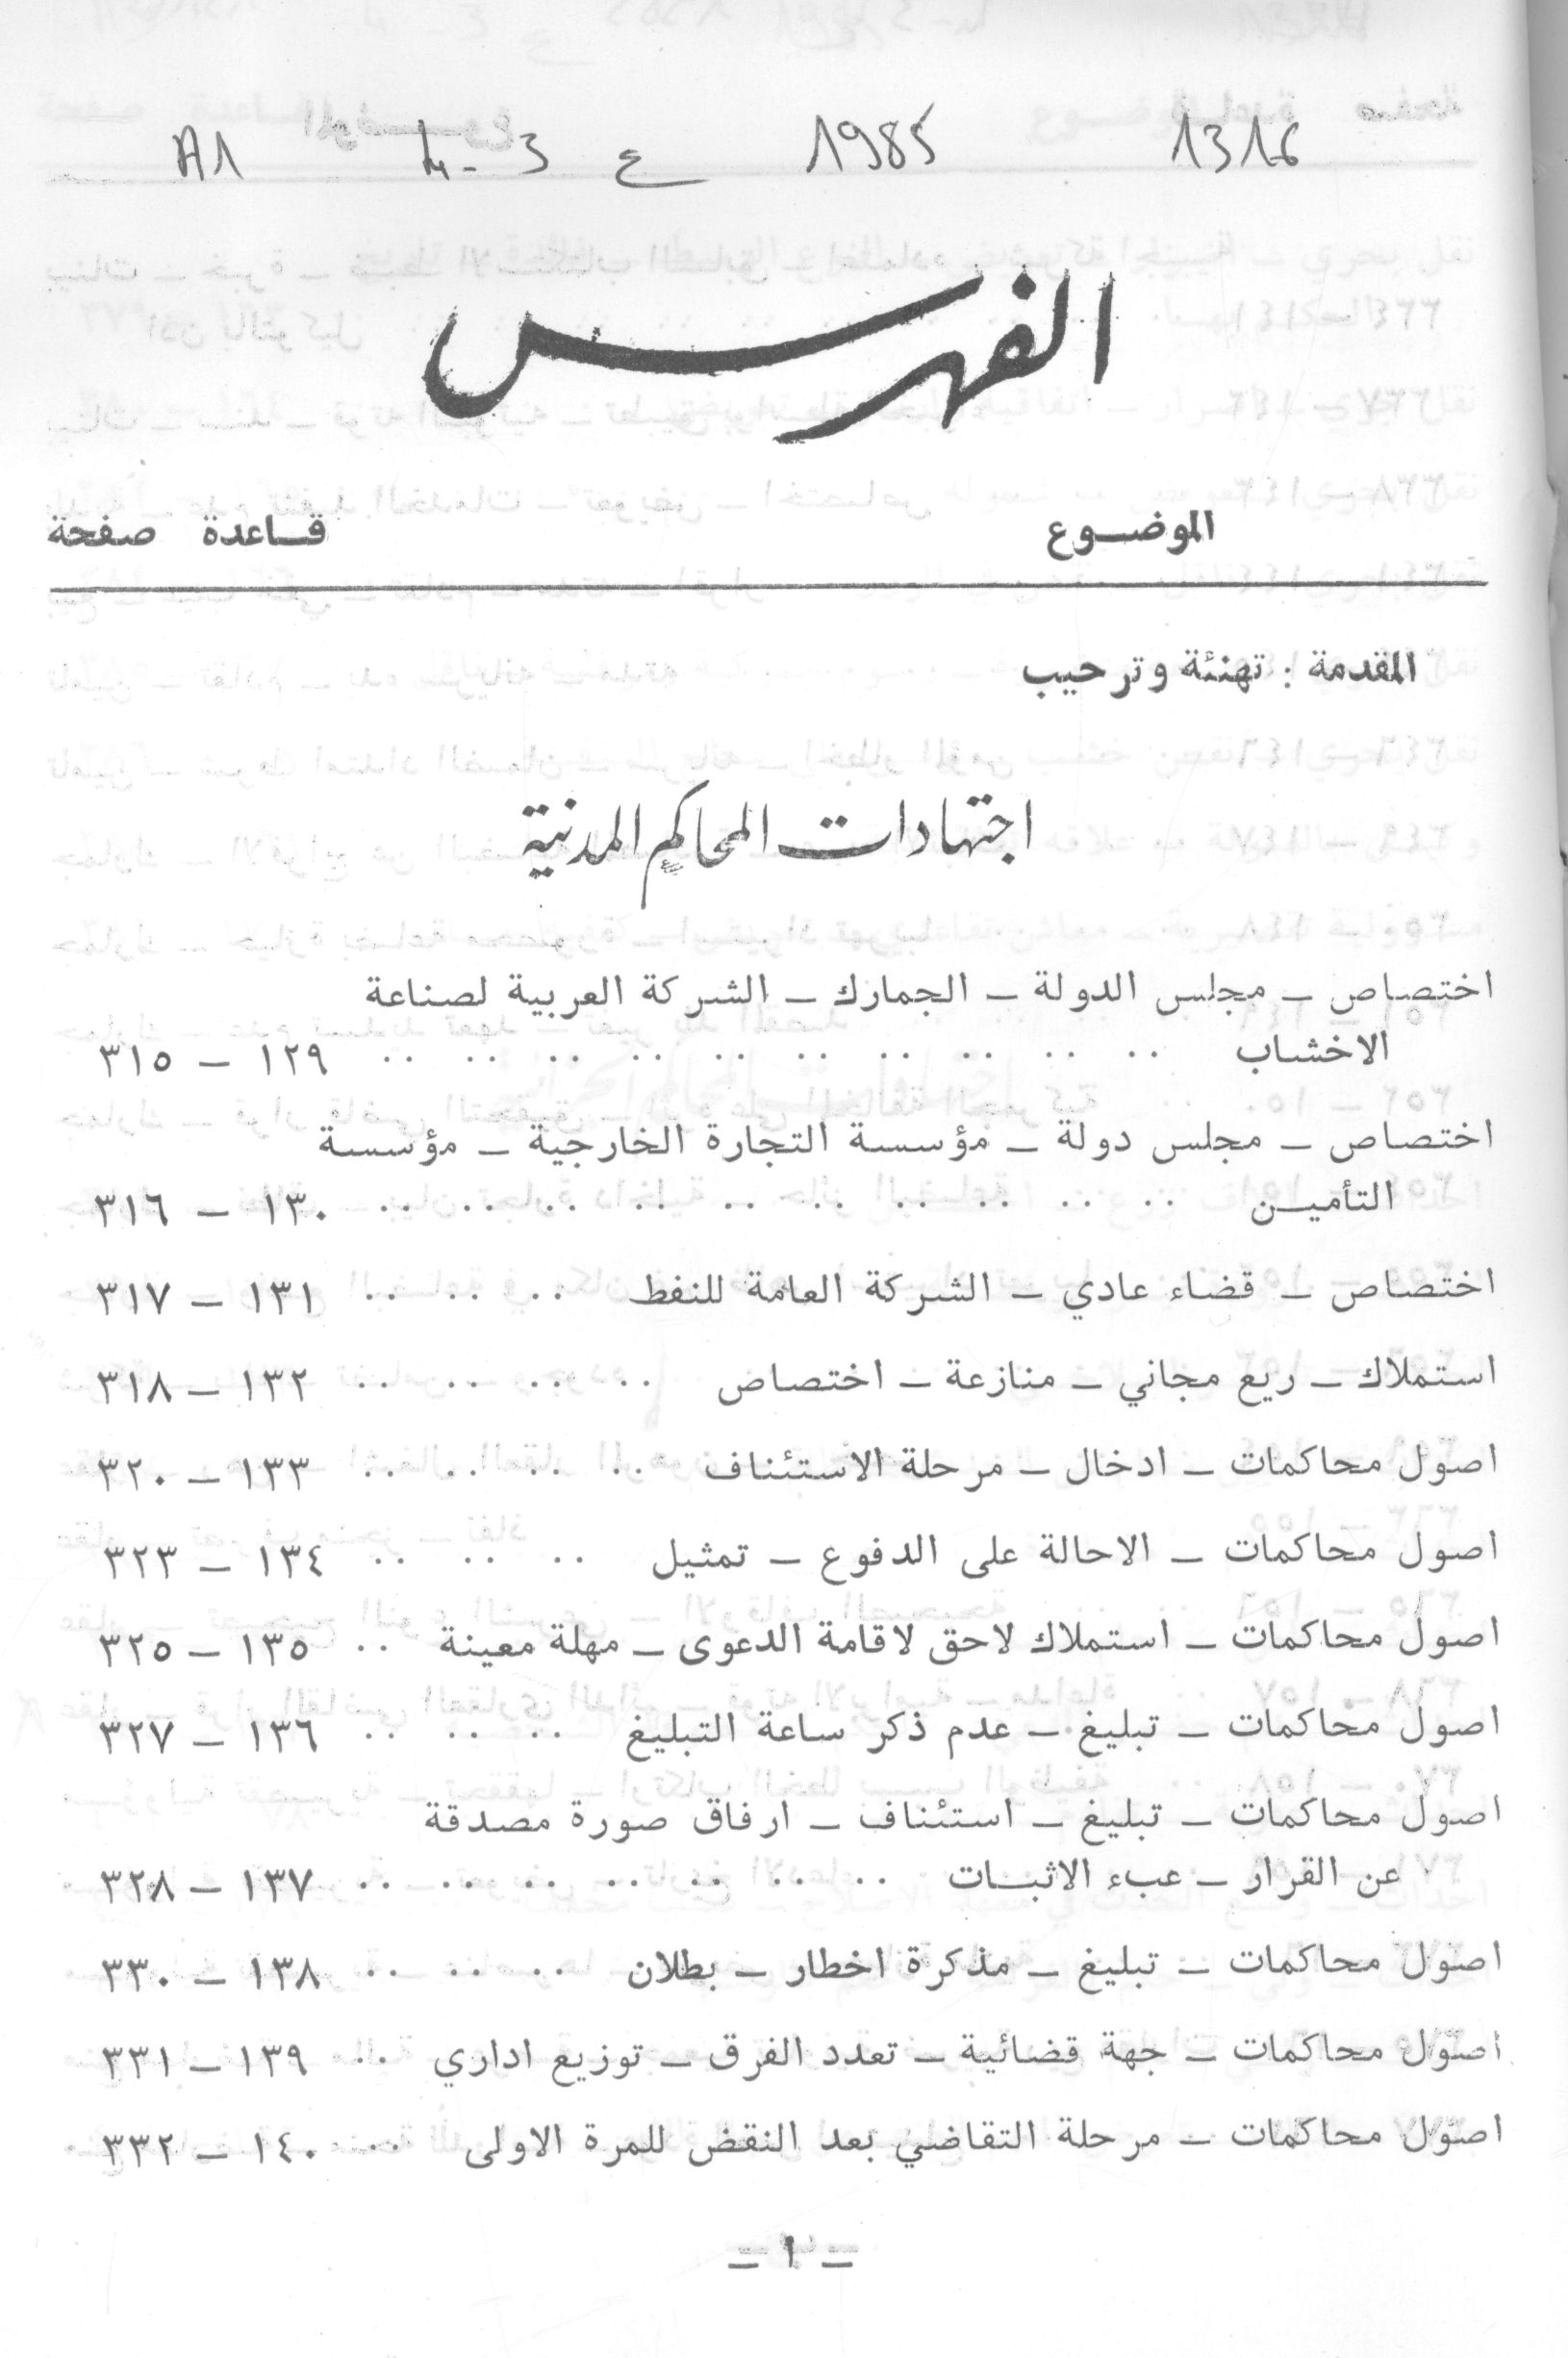 1316 1985 ع 3-4 A1
الفهرس
الموضوع قاعدة صفحة
المقدمة : تهنئة وترحيب
اجتهادات المحاكم المدنية
اختصاص – مجلس الدولة – الجمارك – الشركة العربية لصناعة
الاخشاب ·· ·· ·· ·· ·· ·· ·· ·· ·· ·· ١٢٩ – ٣١٥
اختصاص – مجلس دولة – مؤسسة التجارة الخارجية – مؤسسة
التأمين ·· ·· ·· ·· ·· ·· ·· ·· ·· ·· ١٣٠ – ٣١٦
اختصاص – قضاء عادي – الشركة العامة للنفط ·· ·· ·· ١٣١ – ٣١٧
استملاك – ريع مجاني – منازعة – اختصاص ·· ·· ·· ·· ١٣٢ – ٣١٨
اصول محاكمات – ادخال – مرحلة الاستئناف ·· ·· ·· ·· ١٣٣ – ٣٢٠
اصول محاكمات – الاحالة على الدفوع – تمثيل ·· ·· ·· ١٣٤ – ٣٢٣
اصول محاكمات – استملاك لاحق لاقامة الدعوى – مهلة معينة ·· ١٣٥ – ٣٢٥
اصول محاكمات – تبليغ – عدم ذكر ساعة التبليغ ·· ·· ·· ١٣٦ – ٣٢٧
اصول محاكمات – تبليغ – استئناف – ارفاق صورة مصدقة
عن القرار – عبء الاثبات ·· ·· ·· ·· ·· ·· ·· ١٣٧ – ٣٢٨
اصول محاكمات – تبليغ – مذكرة اخطار – بطلان ·· ·· ·· ١٣٨ – ٣٣٠
اصول محاكمات – جهة قضائية – تعدد الفرق – توزيع اداري ·· ١٣٩ – ٣٣١
اصول محاكمات – مرحلة التقاضي بعد النقض للمرة الاولى ·· ١٤٠ – ٣٣٢
– ١ –